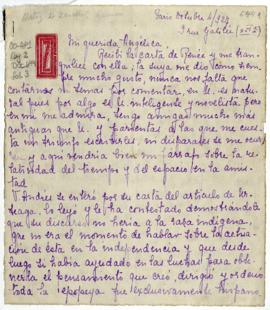 Paris Octubre 6/929
3 rue Galilée
Mi querida Angélica
Recibí la carta de Renée y me tran-
quilicé con ella, la suya me dio como siempre
mucho gusto, nunca nos falta que
contarnos ni temas por comentar, en U. es natu-
ral pues por algo es U. inteligente y novelista pero
en mi me admira, tengo amigas mucho más
antiguas que U. y parientas a las que me cuesta
un triunfo escribirles, ni disparates se me ocurren
y aquí vendría bien un párrafo sobre la re-
latividad del tiempo y del espacio en la amis-
tad
Andrés se enteró por su carta del artículo de
lo leyó y le ha contestado demostrándole
que su discurso no hería a la raza indígena,
que no era el momento de hablar sobre la actua-
ción de ésta en la independencia y que desde
luego si había ayudado en las luchas para ob-
tenerla el pensamiento que creó, dirigió y ordenó
toda la epopeya fue exclusivamente hispano